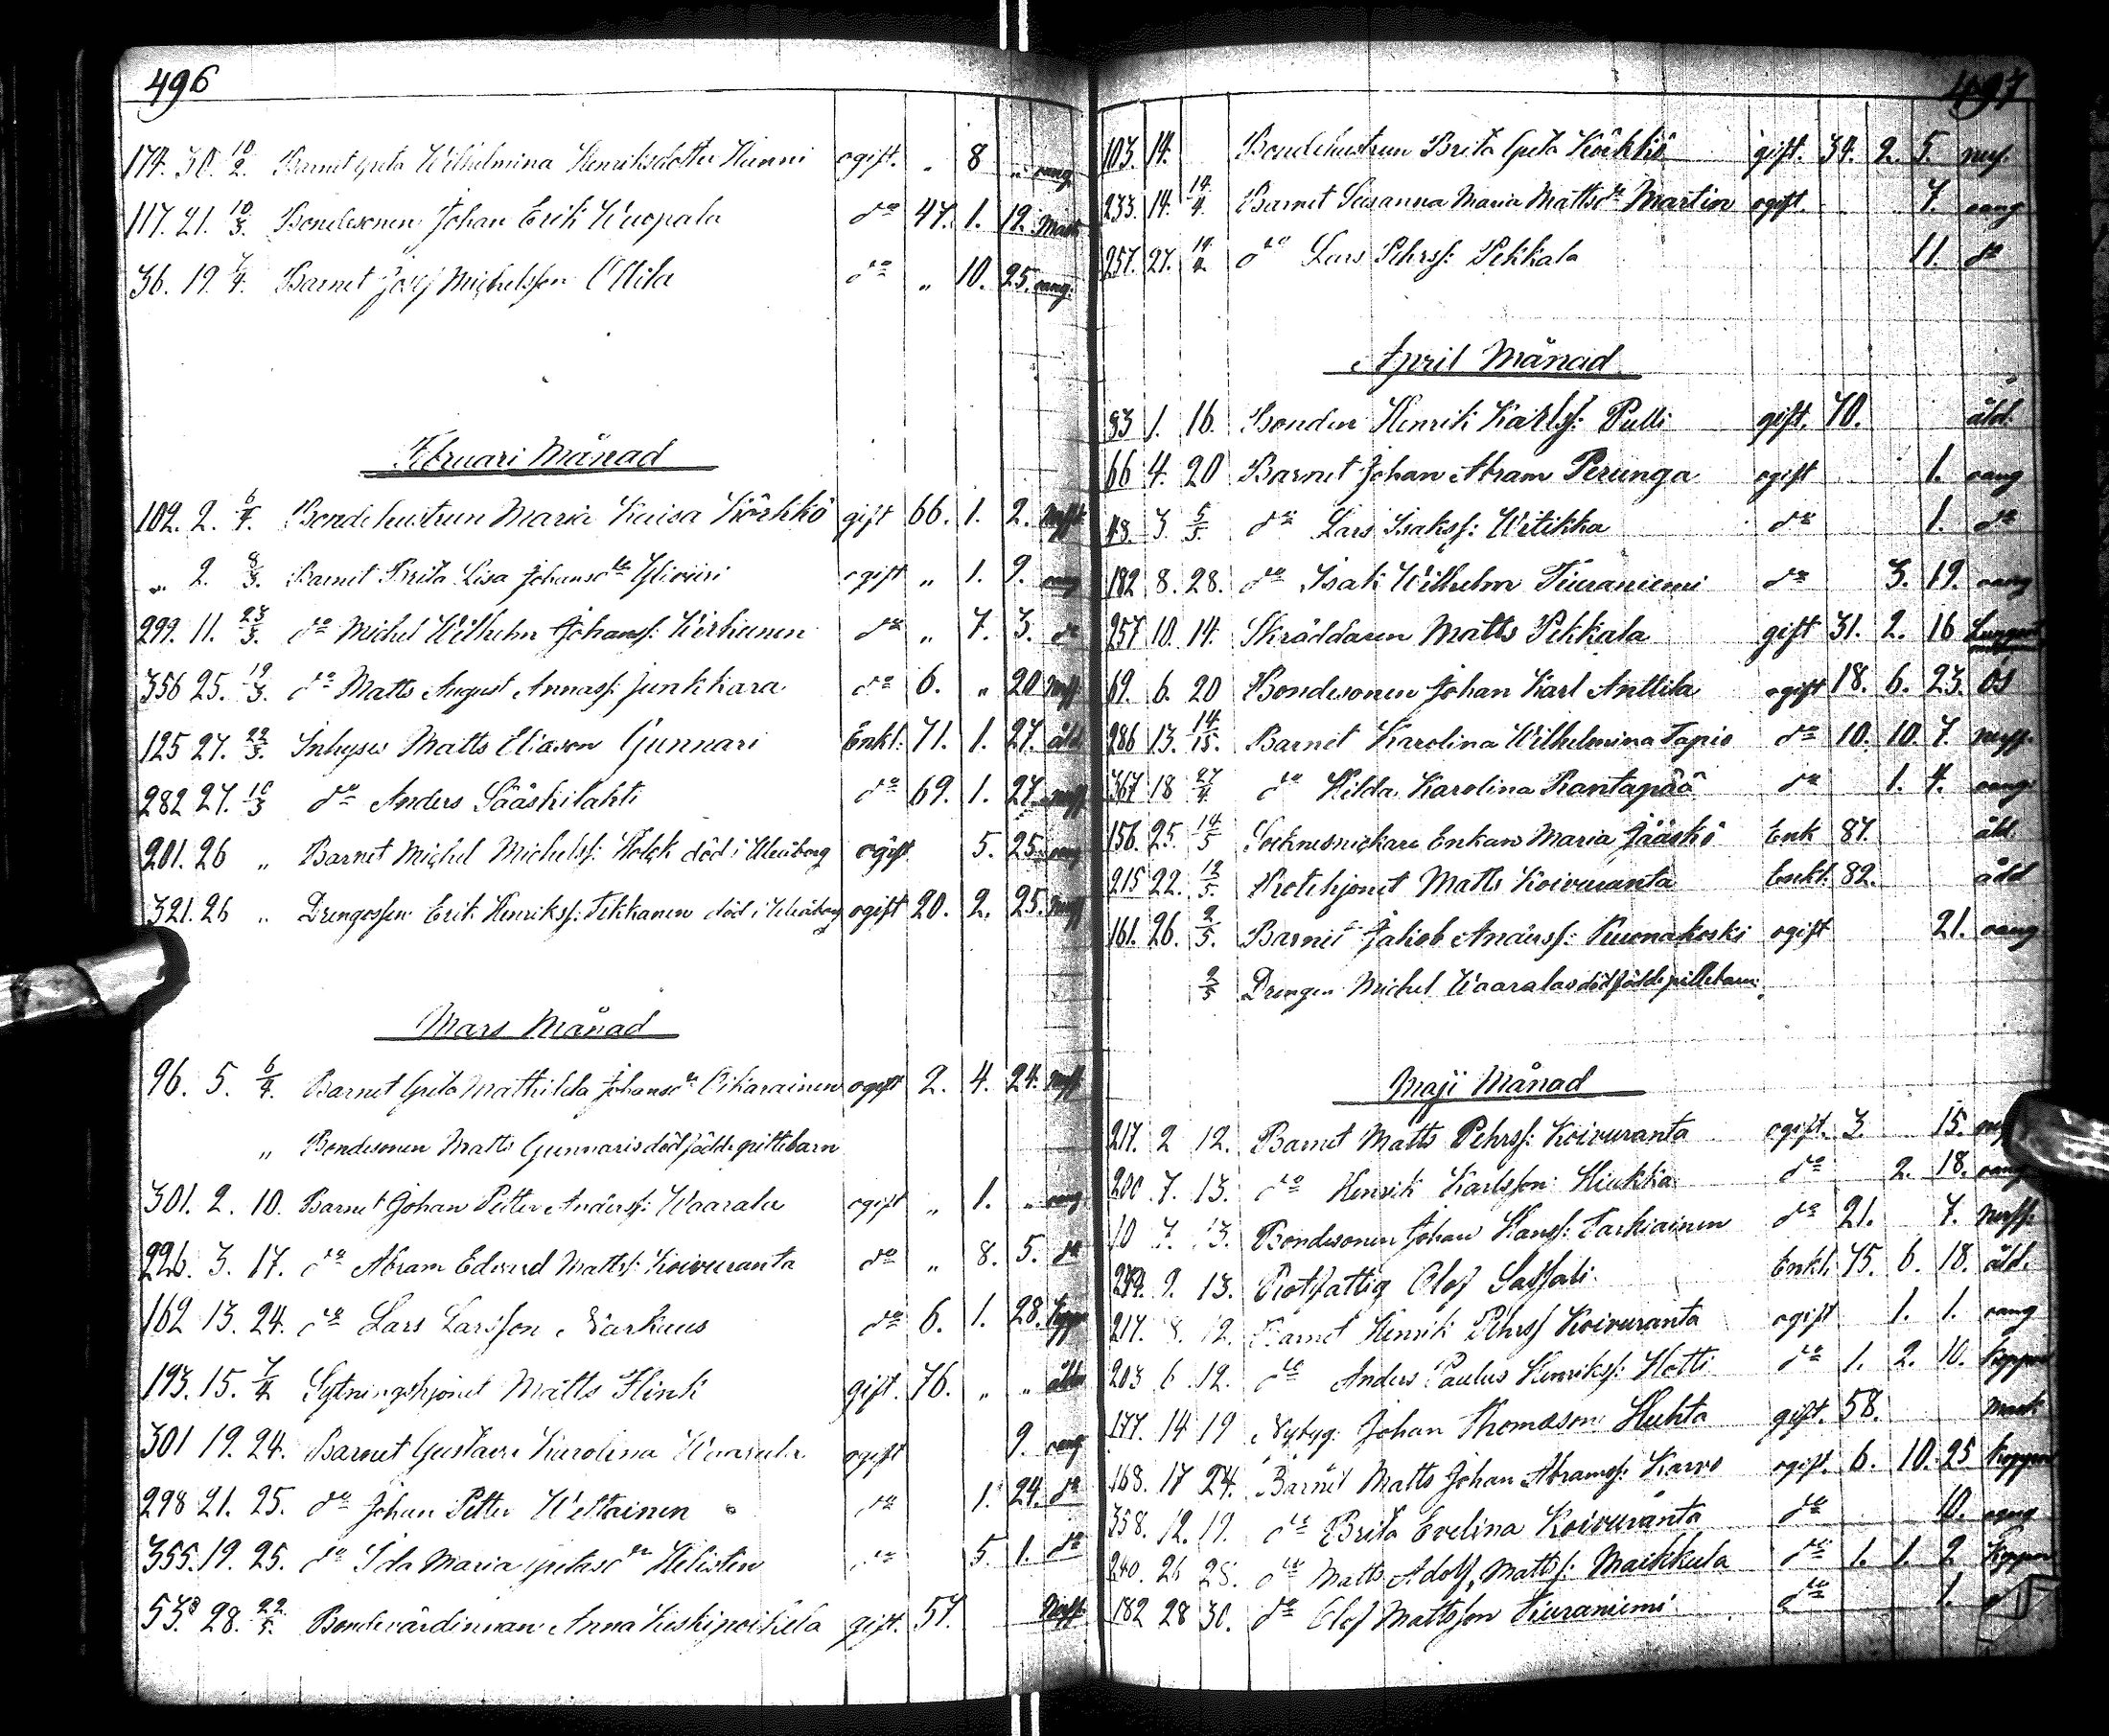 496
174. 30. 10/2. Barnet Greta Wilhelmina Henriksdotter Hanni ogift. „ 8 „ oang.
117. 21. 10/3. Bondesonen Johan Erik Kuopala do 47. 1. 12.
36. 19. 7/4. Barnet Josef Michelsson Ollila do „ 10. 25. oang.
Februari Månad
102. 2. 6/4. Bondehustrun Maria Kaisa Körkkö gift 66. 1. 2. nerff
„ 2. 8/3. Barnet Brita Lisa Johansdtr Ylivieri ogift „ 1. 9. oang
299. 11. 23/3. do Michel Wilhelm Johanss: Kerkunen do „ 7. 3. do
356 25. 19/3. do Matts August Annass: Junkkara do 6. „ 20 nerff
125 27. 22/3. Inhyses Matts Eliason Gunnari Enkl: 71. 1. 27. åld
282 27. 10/3 do Anders Sääskilahti do 69. 1. 27. nerff
201. 26 „ Barnet Michel Michelss: Holck död i Uleåborg ogift 5. 25. oang
321. 26 „ Drengossen Erik Henrikss: Tikkanen död i Uleåborg ogift 20. 2. 25. nerff
Mars Månad
96. 5. 6/4. Barnet Greta Mathilda Johansdr Oikarainen ogift 2. 4. 24. nerff
„ Bondesonen Matts Gunnaris dödfödde gittebarn
301. 2. 10. Barnet Johan Petter Anderss: Waarala ogift „ 1. „ oang
226. 3. 17. do Abram Edvard Mattss: Koivuranta do „ 8. 5. do
162 13. 24. do Lars Larsson Narkaus do 6. 1. 28. Koppr
193. 15. 7/4 Sytningshjonet Matts Hink gift. 76. „ „ ålder
301 19. 24. Barnet Gustava Karolina Waarala ogift 9. oang
298 21. 25. do Johan Petter Weltainen do 1. 24. do
355. 19. 25. do Ida Maria Gretasdr Helisten do 5. 1. do
53. 28. 22/5. Bondevärdinnan Anna Keskipoikela gift. 57. Nerff
497
103. 14. Bondehustrun Brita Greta Körkkö gift. 34. 2. 5. nerf.
233. 14. 14/4. Barnet Susanna Maria Mattsdr Martin ogift. 7. oang
257. 27. 19/4 do Lars Pehrss: Pekkala 11. do
April Månad
83 1. 16. Bonden Henrik Karlss: Pulli gift. 70. åld.
66 4. 20 Barnet Johan Abram Perunga ogift 1. oang
43. 3. 5/5. do Lars Isakss: Witikka do 1. do
182 8. 28. do Isak Wilhelm Tiuraniemi do 3. 19. oang
257 10. 14. Skräddaren Matts Pekkala gift 31. 2. 16
69. 6. 20 Bondesonen Johan Karl Anttila ogift 18. 6. 23. ós
286 13. 14/15. Barnet Karolina Wilhelmina Tapio do 10. 10. 7. nerff.
367 18 27/4. do Hilda Karolina Rantapää do 1. 4. oang.
156. 25. 14/5 Socknesnickare Enkan Maria Jääskö Enk 87. åld.
215 22. 12/5. Rotehjonet Matts Koivuranta Enkl. 82. åld
161. 26. 2/5. Barnet Jakob Anderss: Kuonakoski ogift 21. oang
2/5 Drengen Michel Waaralas dödfödde pillebarn.
Maji Månad
217. 2 12. Barnet Matts Pehrss: Koivuranta ogift. 3. 15.
200. 7. 13. do Henrik Karlsson Hiukka do 2. 18. oang
10 7. 13. Bondesonen Johan Hanss: Tarkiainen do 21. 7. nerff:
9. 13. Rotfattig Olof Sassali. Enkl. 75. 6. 18. åld.
217. 8. 12. Barnet Henrik Pehrss Koivuranta ogift 1. 1. oang
203 6 12. do Anders Paulus Henrikss: Hotti do 1. 2. 10. Koppor
177. 14 19 Nybyg. Johan Thomæson Huhta gift. 58.
168. 17 24. Barnet Matts Johan Abramss: Karvo ogift. 6. 10. 25 Koppor
358. 12. 19. do Brita Evelina Koivuranta do 10. oang
240. 26 25. do Matts Adolf Mattss: Maikkula do 1. 1. 2 Koppor
182 28 30. do Olof Mattsson Tiuraniemi do 1.